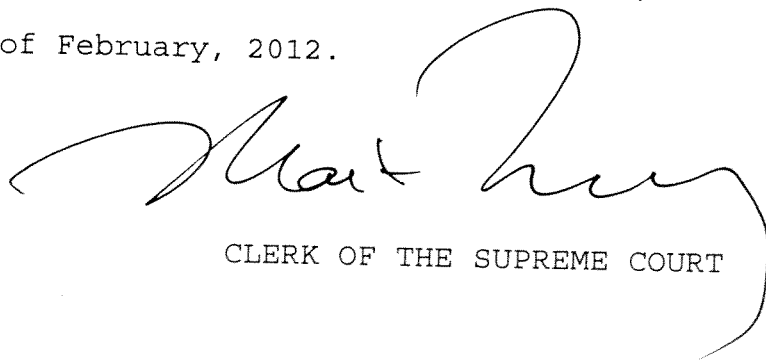 of February, 2012.
CLERK OF THE SUPREME COURT